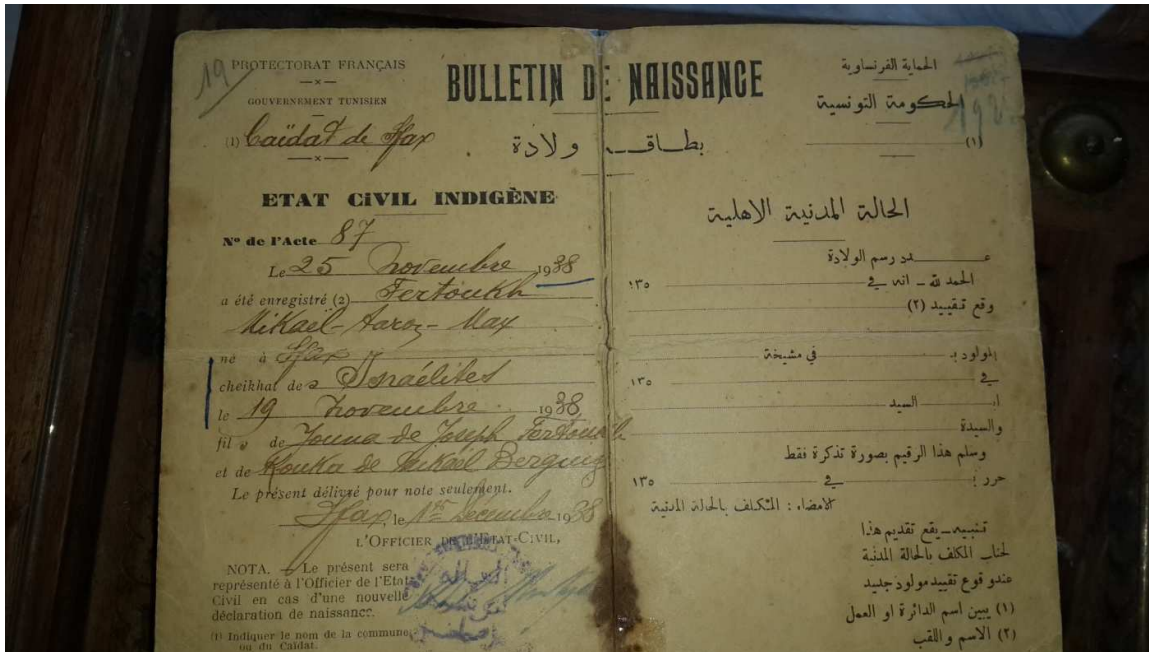 19
PROTECTORAT FRANÇAIS
GOUVERNEMENT TUNISIEN
(1) Caïdat de Sfax
BULLETIN DE NAISSANCE
بطاقة ولادة
ETAT CIVIL INDIGÈNE
N° de l'Acte 87
Le 25 novembre 1938
a été enregistré (2) Fertoukh
Mikaël-Aaron-Max
né à Sfax
cheikhat des Israélites
le 19 novembre 1938
fils de Jouna de Joseph Fertoukh
et de Kouka de Mikaël
Le présent délivré pour note seulement.
Sfax, le 1er Décembre 1938
L'OFFICIER DE L'ETAT-CIVIL,
NOTA. - Le présent sera
représenté à l'Officier de l'Etat
Civil en cas d'une nouvelle
déclaration de naissance.
(1) Indiquer le nom de la commune
ou du Caïdat.
الحماية الفرنساوية
الحكومة التونسية
(١)
الحالة المدنية الاهلية
عدد رسم الولادة
الحمد لله - انه في ١٣٥
وقع تقييد (٢)
المولود بـ في مشيخة
في ١٣٥
ابن السيد
والسيدة
وسلم هذا الرقيم بصورة تذكرة فقط
حرر بـ في ١٣٥
الامضاء : المكلف بالحالة المدنية
تنبيه - يقع تقديم هذا
لجناب المكلف بالحالة المدنية
عند وقوع تقييد مولود جديد
(١) يبين اسم الدائرة او العمل
(٢) الاسم واللقب